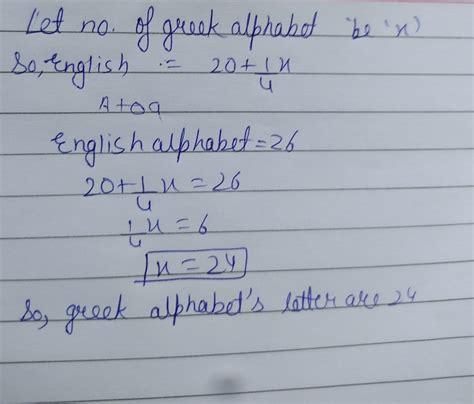 Let no. of greek alphabet be 'x'
So, English := 20+1/4x
A+oq
English alphabet = 26
20+1/4x = 26
1/4x = 6
x = 24
So, greek alphabet's letter are 24